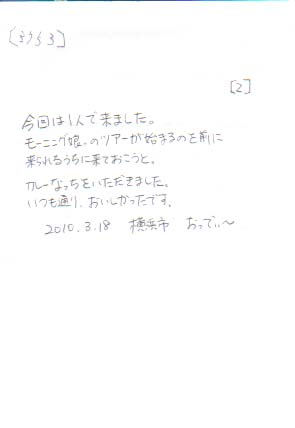 [2]
今回は1人で来ました。
モーニング娘。のツアーが始まるのを前に
来られるうちに来ておこうと。
カレーなっちをいただきました。
いつも通り、おいしかったです。
2010.3.18 横浜市 おってぃ〜